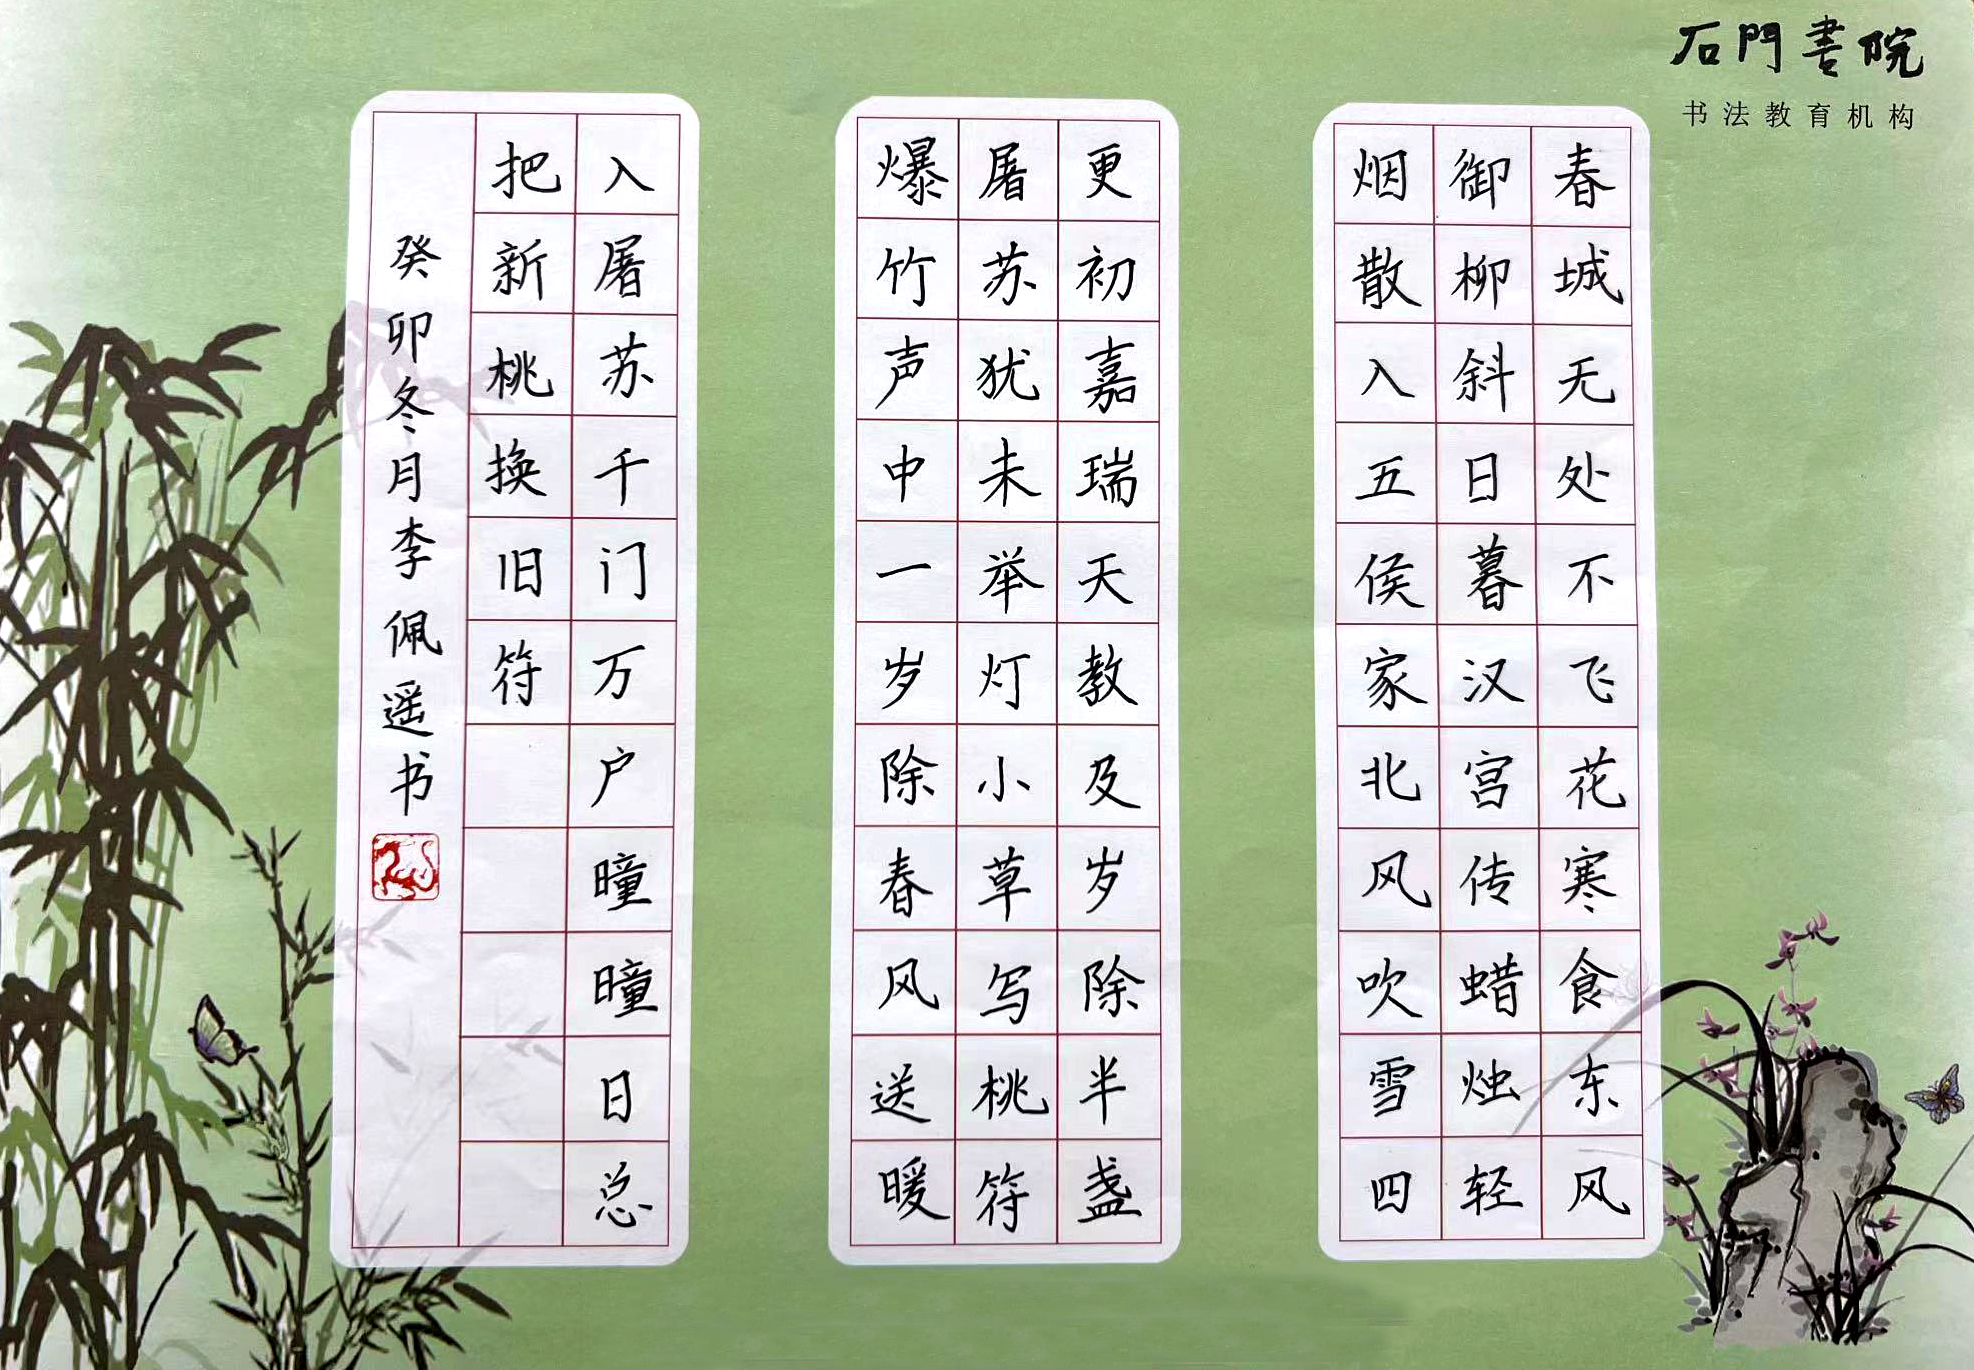 石門書院
书法教育机构
春城无处不飞花寒食东风
御柳斜日暮汉宫传蜡烛轻
烟散入五侯家北风吹雪四
更初嘉瑞天教及岁除半盏
屠苏犹未举灯小草写桃符
爆竹声中一岁除春风送暖
入屠苏千门万户曈曈日总
把新桃换旧符
癸卯冬月李佩遥书